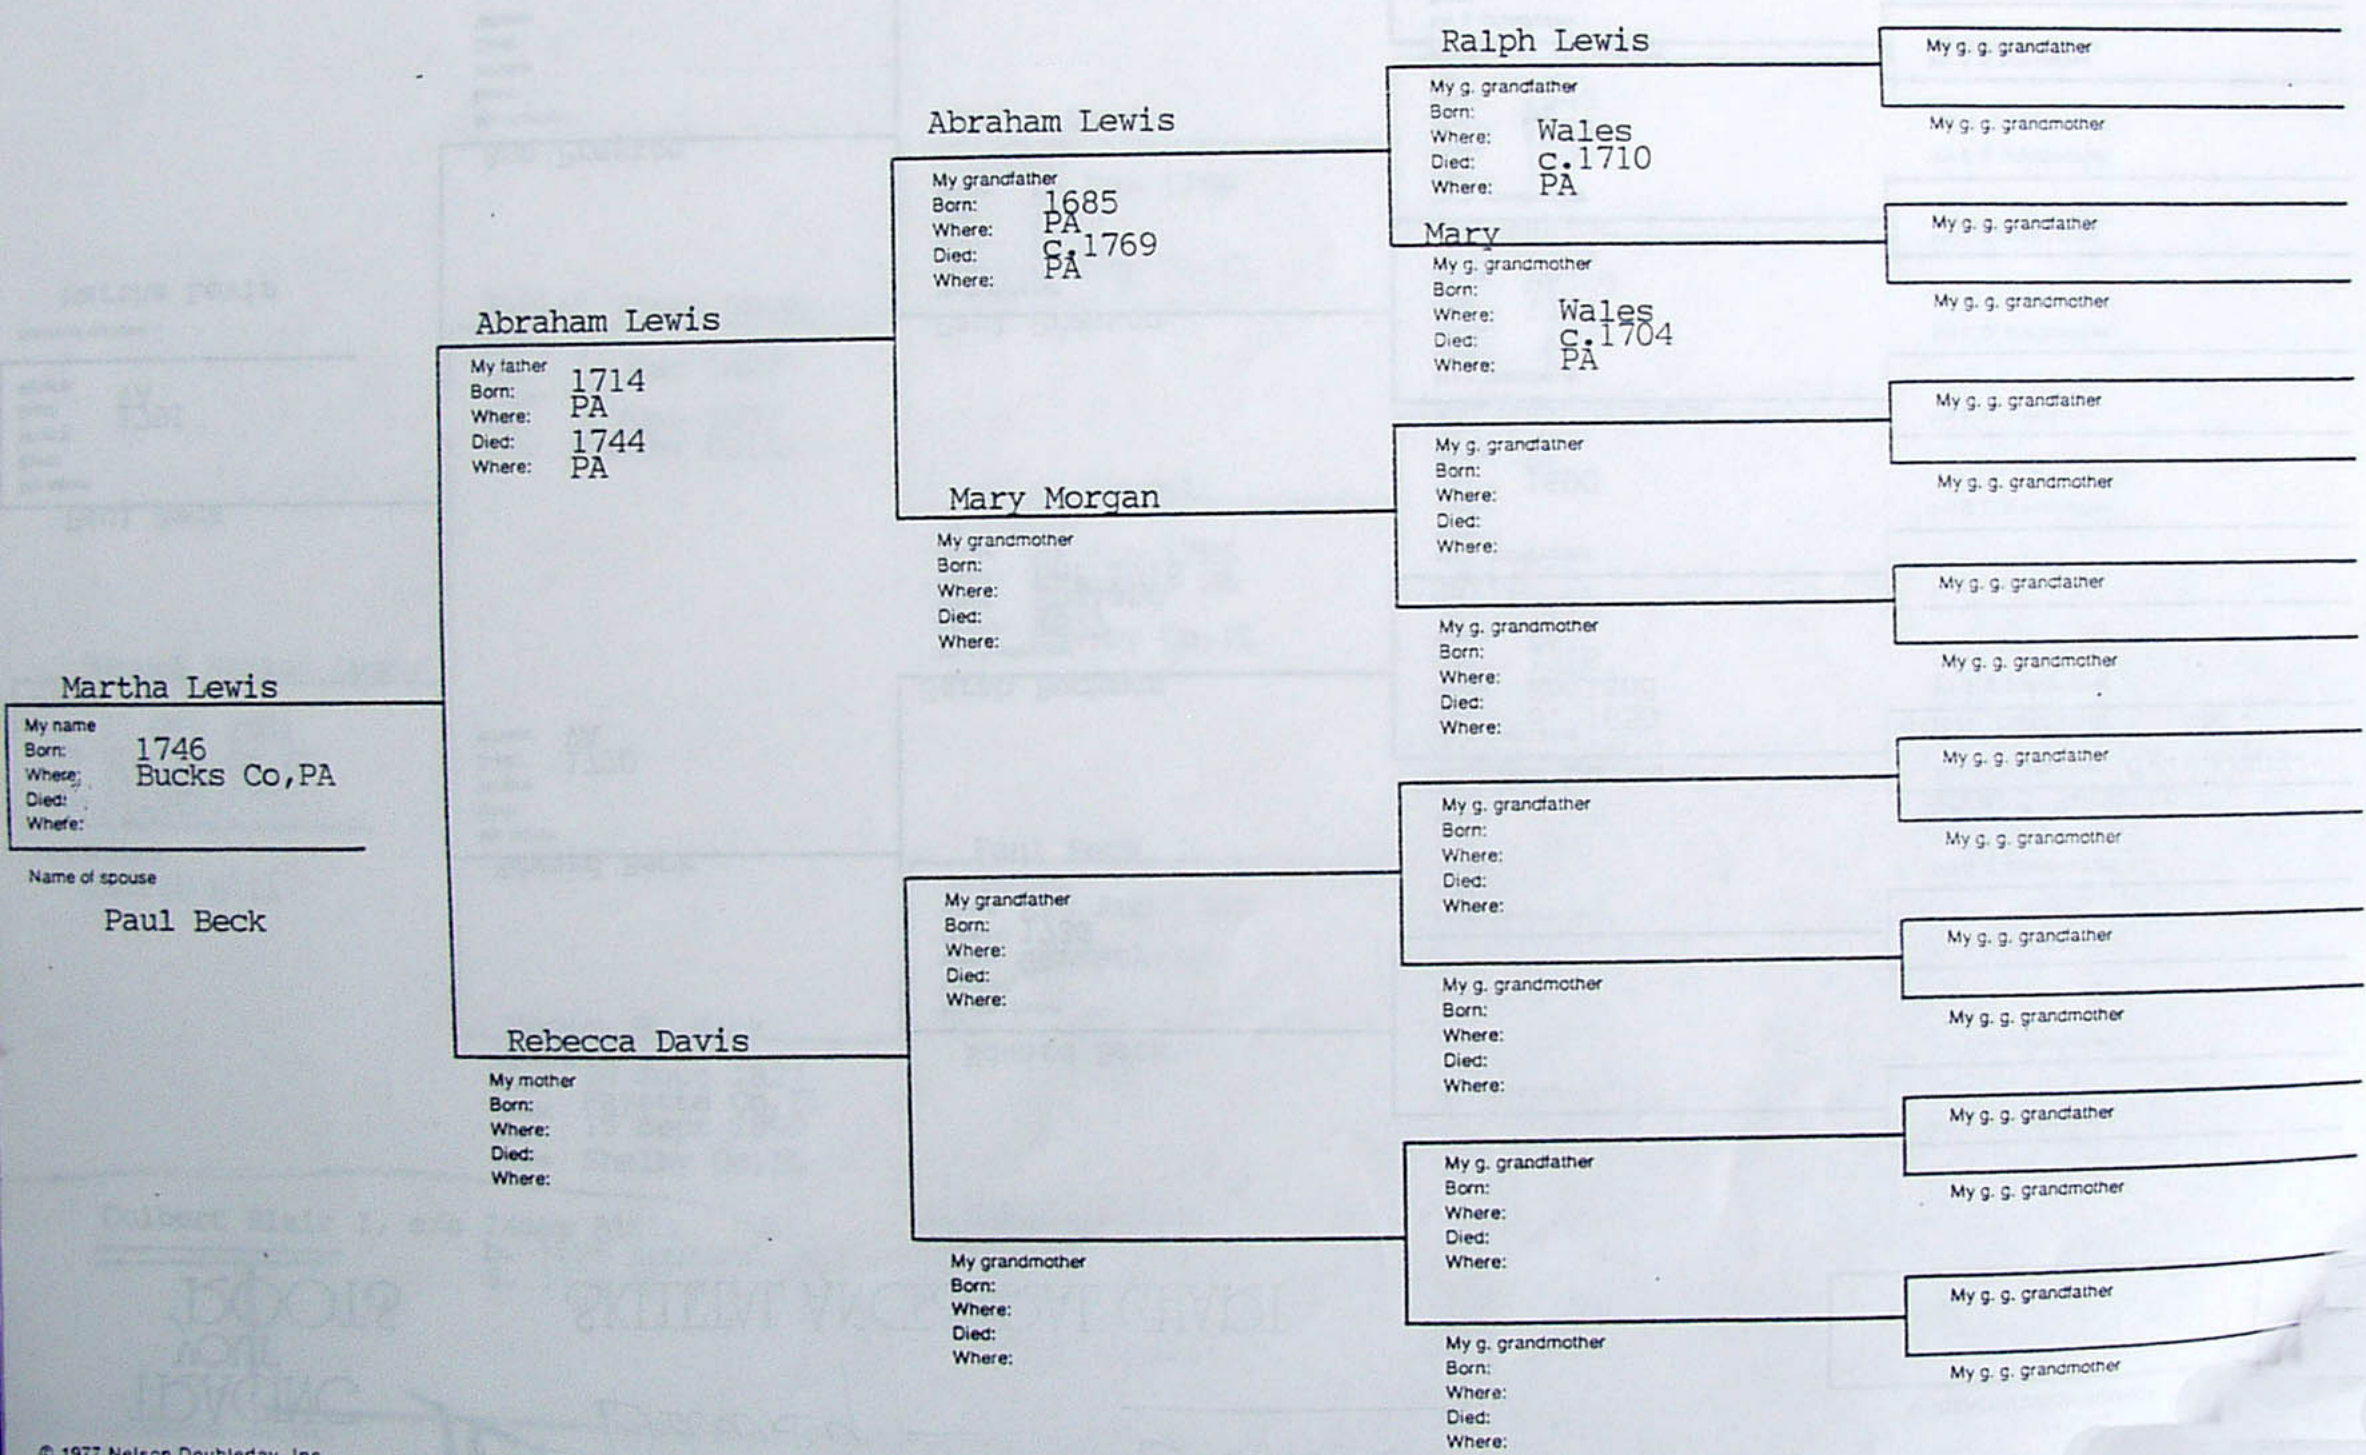 Martha Lewis
My name
Born: 1746
Where: Bucks Co,PA
Died:
Where:
Name of spouse
Paul Beck
Abraham Lewis
My father
Born: 1714
Where: PA
Died: 1744
Where: PA
Rebecca Davis
My mother
Born:
Where:
Died:
Where:
Abraham Lewis
My grandfather
Born: 1685
Where: PA
Died: c.1769
Where: PA
Mary Morgan
My grandmother
Born:
Where:
Died:
Where:
My grandfather
Born:
Where:
Died:
Where:
My grandmother
Born:
Where:
Died:
Where:
Ralph Lewis
My g. grandfather
Born:
Where: Wales
Died: c.1710
Where: PA
Mary
My g. grandmother
Born:
Where: Wales
Died: c.1704
Where: PA
My g. grandfather
Born:
Where:
Died:
Where:
My g. grandmother
Born:
Where:
Died:
Where:
My g. grandfather
Born:
Where:
Died:
Where:
My g. grandmother
Born:
Where:
Died:
Where:
My g. grandfather
Born:
Where:
Died:
Where:
My g. grandmother
Born:
Where:
Died:
Where:
My g. g. grandfather
My g. g. grandmother
My g. g. grandfather
My g. g. grandmother
My g. g. grandfather
My g. g. grandmother
My g. g. grandfather
My g. g. grandmother
My g. g. grandfather
My g. g. grandmother
My g. g. grandfather
My g. g. grandmother
My g. g. grandfather
My g. g. grandmother
My g. g. grandfather
My g. g. grandmother
© 1977 Nelson Doubleday, Inc.